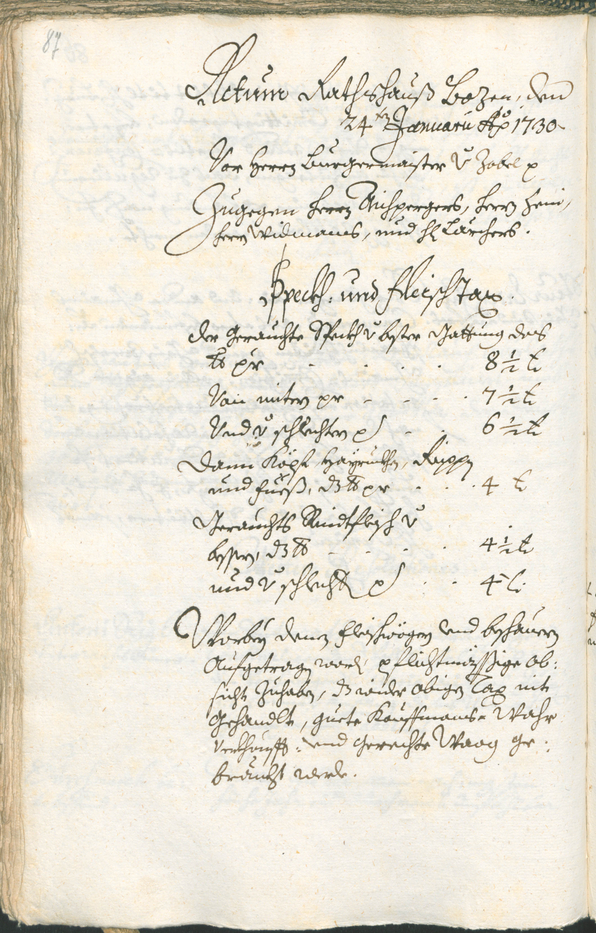 87
Actum Rathshauß Bozen, den
24ten Januarii Ao 1730.
Vor Herrn Burgermaister v Zobel p
Zugegen Herrn Aichpergers, Herrn
Herrn Widmans, und H: Larchers.
Speckh: und Fleisch Tax.
Der Gerauchte Speckh v bester Gattung das
lb pr 8 1/2 kr
Von mitern pr 7 1/2 kr
Und v schlechten p 6 1/2 kr
Dann Köpf, Rippen
und Fueß, dz lb pr 4 kr
Gerauchts Rindtfleisch v
bessern, dz lb 4 1/2 kr
und v schlecht p 4 kr
Worbey denen und beschauern
Aufgetragen word: pflichtmässige ob:
sicht zuhaben, dz wider obigen Tax nit
Gehandlt, guete Kauffmans= Wahr
verkhaufft: und gerechte Waag ge:
braucht werde.